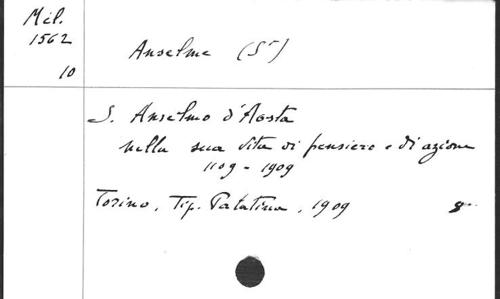 Mil.
1562
10
Anselme (St)
S. Anselmo d'Aosta
nella sua vita di pensiero e di azione
1109 - 1909
Torino, Tip. Palatina, 1909 8°